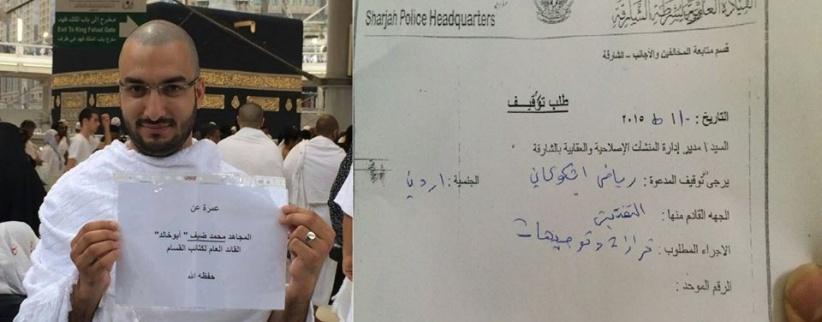 مخرج إلى باب الملك فهد
Exit To King Fahad Gate
عمرة عن
المجاهد محمد ضيف "أبو خالد"
القائد العام لكتائب القسام
حفظه الله
القيادة العامة لشرطة الشارقة
Sharjah Police Headquarters
قسم متابعة المخالفين والأجانب – الشارقة
طلب توقيف
التاريخ : ٢٠١٥
السيد / مدير إدارة المنشآت الإصلاحية والعقابية بالشارقة
يرجى توقيف المدعوة : رياض الجنسية :
الجهه القادم منها :
الاجراء المطلوب :
الرقم الموحد :